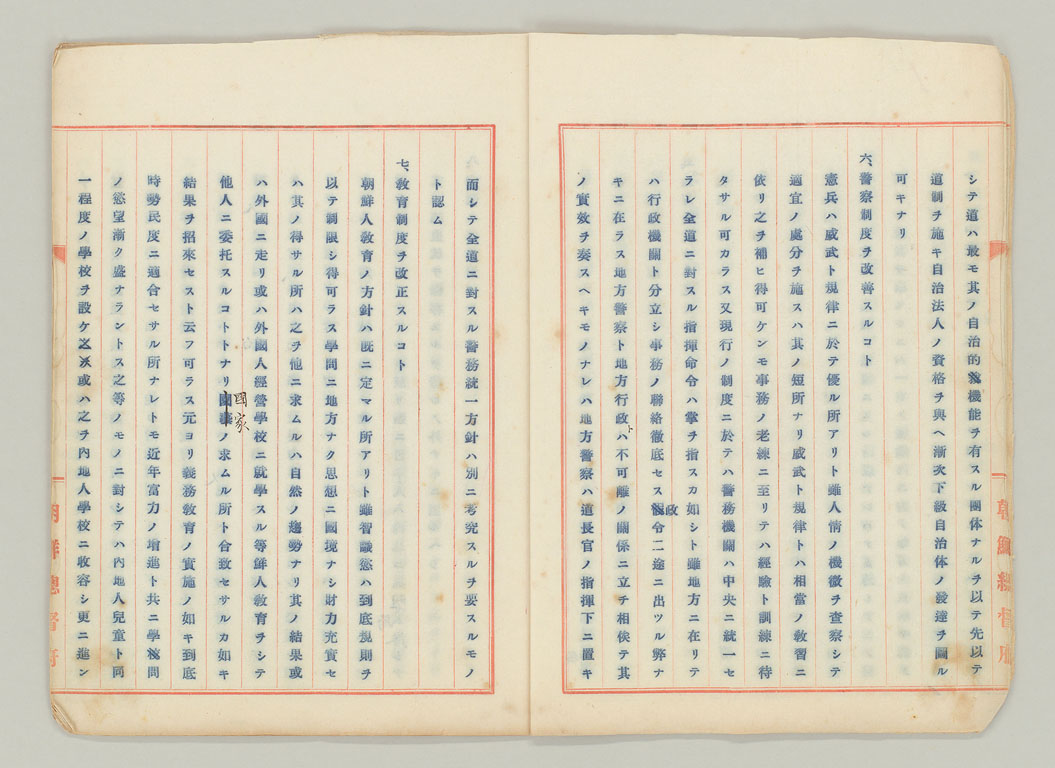 シテ道ハ最モ其ノ自治的機能ヲ有スル團体ナルヲ以テ先以テ
道制ヲ施キ自治法人ノ資格ヲ與ヘ漸次下級自治体ノ發達ヲ圖ル
可キナリ
六、警察制度ヲ改善スルコト
憲兵ハ威武ト規律ニ於テ優ル所アリト雖人情ノ機微ヲ査察シテ
適宜ノ處分ヲ施スハ其ノ短所ナリ威武ト規律トハ相當ノ敎習ニ
依リ之ヲ補ヒ得可ケンモ事務ノ老練ニ至リテハ經驗ト訓練ニ待
タサル可カラス又現行ノ制度ニ於テハ警務機關ハ中央ニ統一セ
ラレ全道ニ對スル指揮命令ハ掌ヲ指スカ如シト雖地方ニ在リテ
ハ行政機關ト分立シ事務ノ聯絡徹底セス政令二途ニ出ツル弊ナ
キニ在ラス地方警察ト地方行政トハ不可離ノ關係ニ立チ相俟テ其
ノ實效ヲ奏スヘキモノナレハ地方警察ハ道長官ノ指揮下ニ置キ
朝鮮總督府
而シテ全道ニ對スル警務統一方針ハ別ニ考究スルヲ要スルモノ
ト認ム
七、敎育制度ヲ改正スルコト
朝鮮人敎育ノ方針ハ既ニ定マル所アリト雖智識慾ハ到底規則ヲ
以テ制限シ得可ラス學問ニ地方ナク思想ニ國境ナシ財力充實セ
ハ其ノ得サル所ハ之ヲ他ニ求ムルハ自然ノ趨勢ナリ其ノ結果或
ハ外國ニ走リ或ハ外國人經營學校ニ就學スル等鮮人敎育ヲシテ
他人ニ委托スルコトトナリ國家ノ求ムル所ト合致セサルカ如キ
結果ヲ招來セスト云フ可ラス元ヨリ義務敎育ノ實施ノ如キ到底
時勢民度ニ適合セサル所ナレトモ近年富力ノ增進ト共ニ學問
ノ慾望漸ク盛ナラントス之等ノモノニ對シテハ內地人兒童ト同
一程度ノ學校ヲ設ケ或ハ之ヲ內地人學校ニ收容シ更ニ進ン
朝鮮總督府